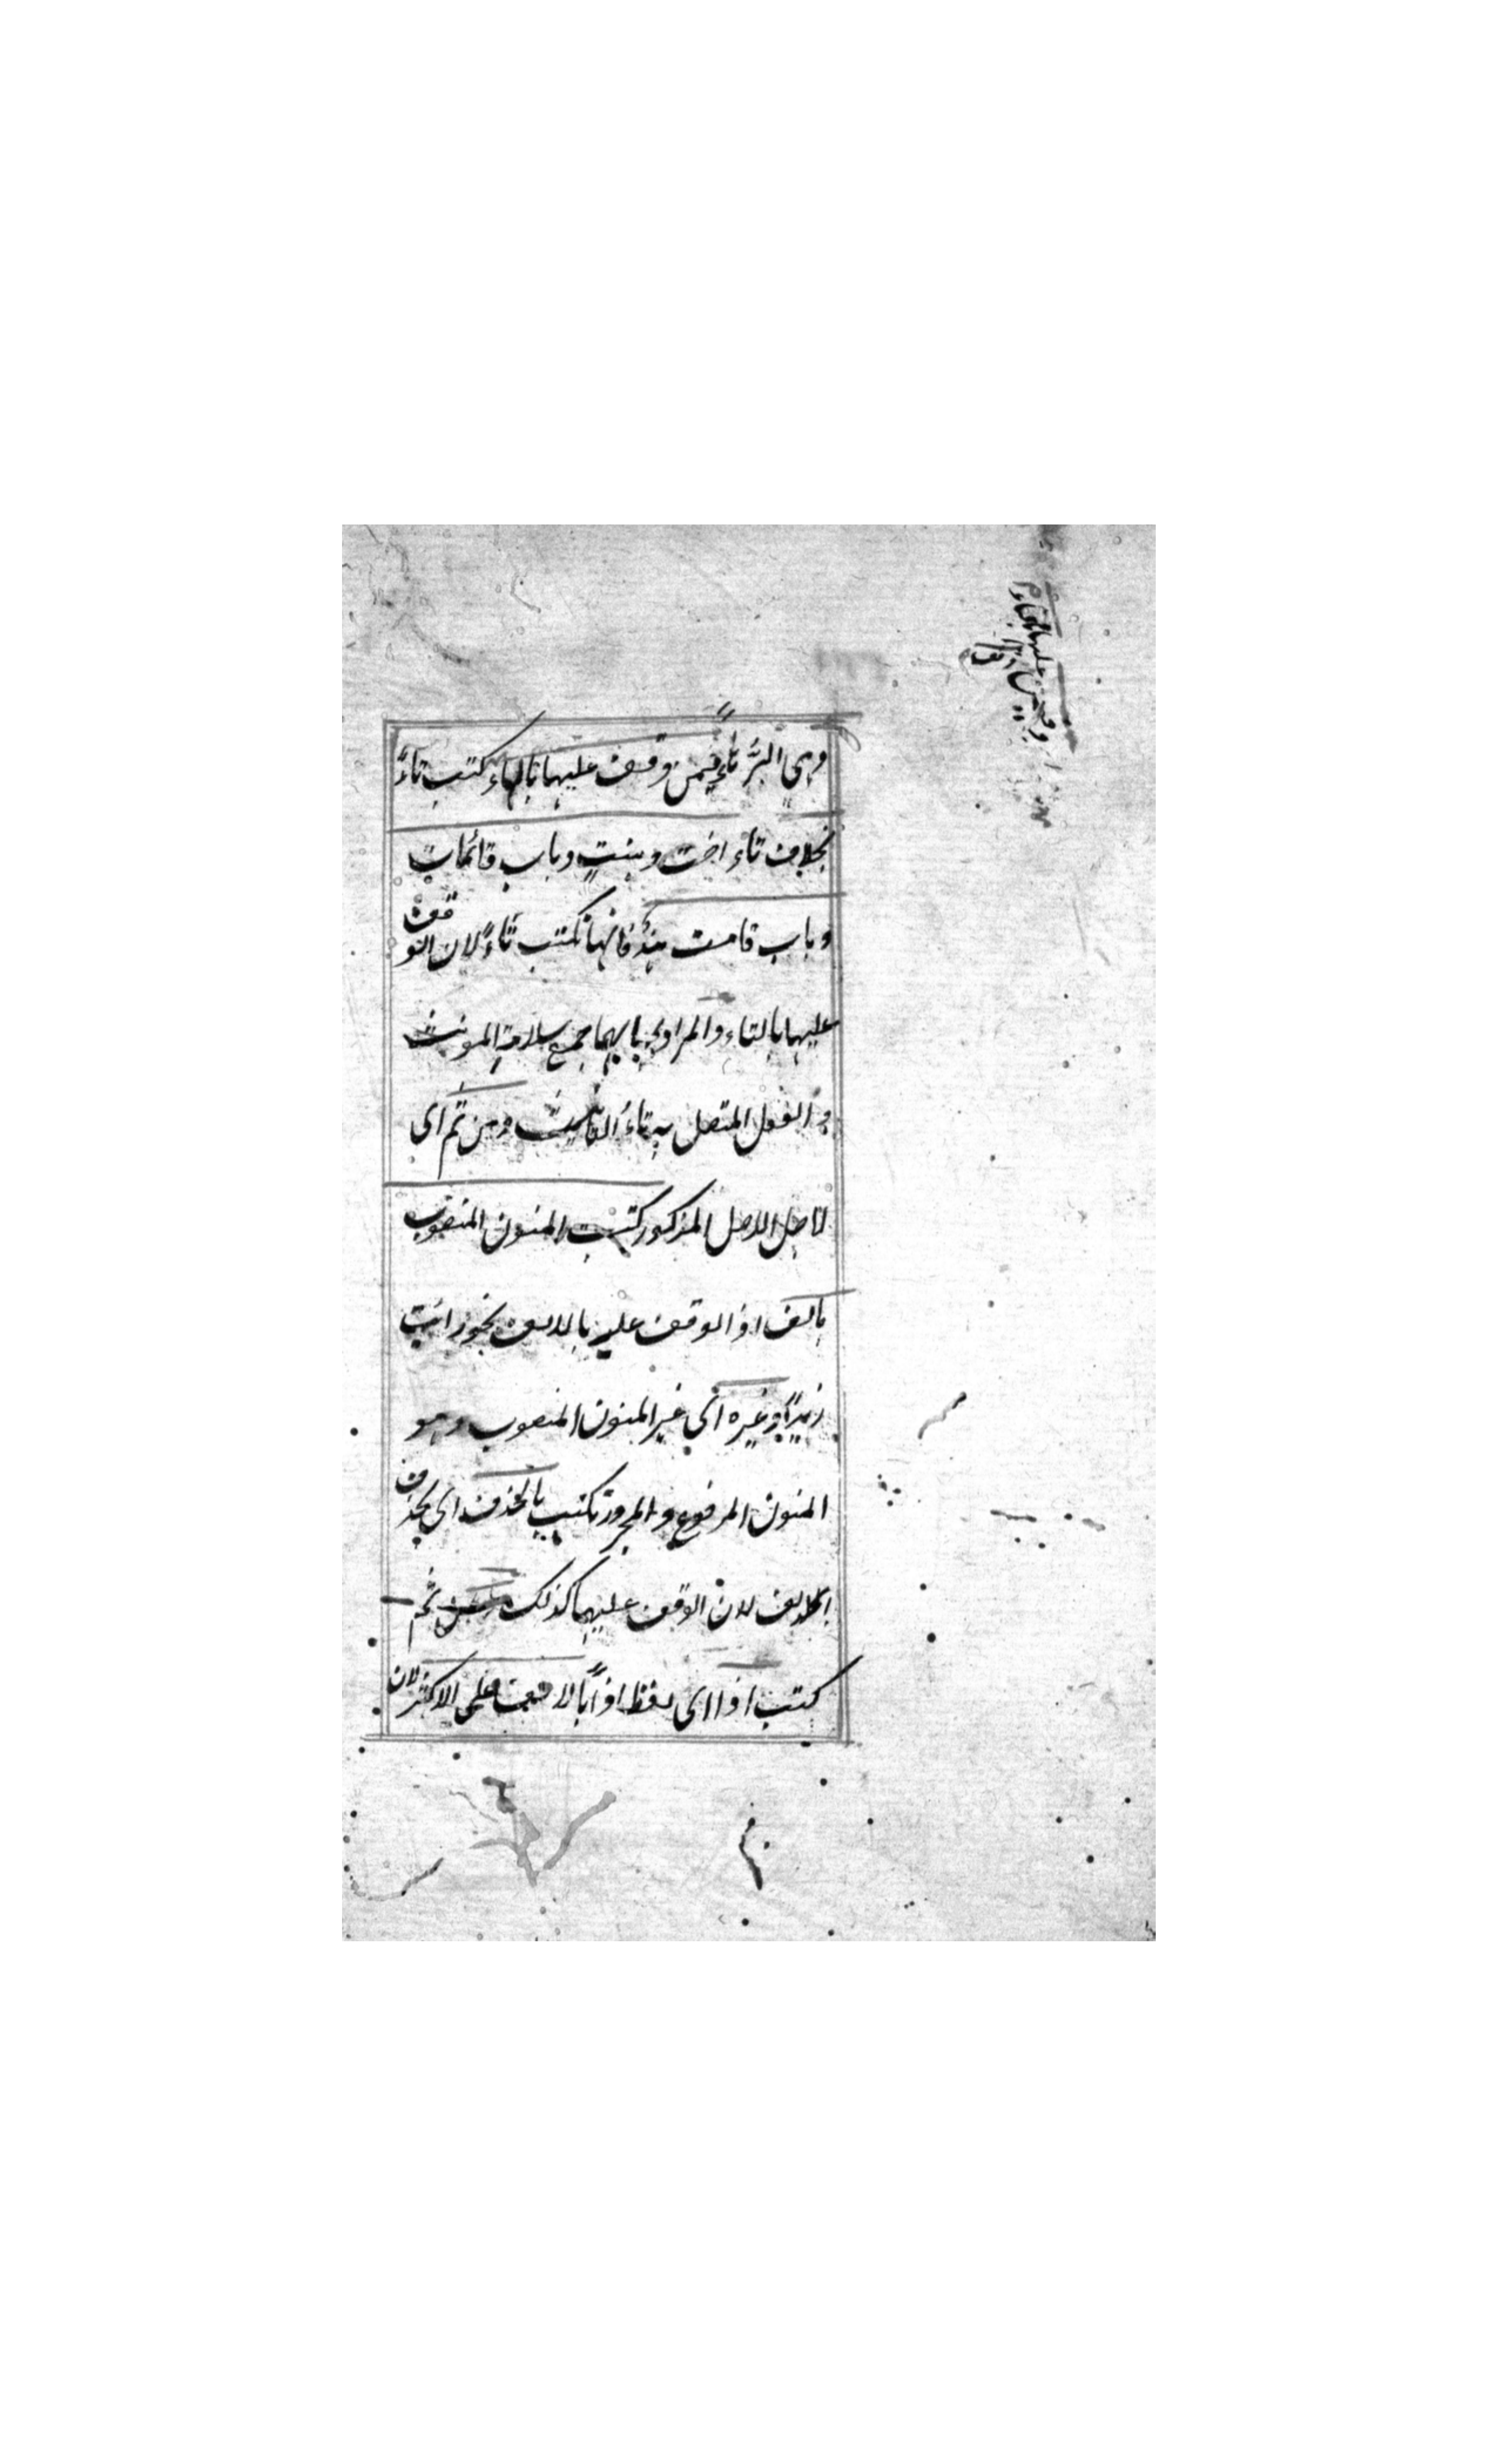 وهي البرّ تاءٌ فيمن وقف عليها بالهاء كتب تاءً
بخلاف تاء اخت وبنتٍ وباب قائمات
وباب قامت هندٌ فانها تكتب تاءً لان الوقف
عليها بالتاء والمراد ببابهما جمع سلامة المونث
والفعل المتصل به تاءُ التانيث ومن ثم اى
لاجل الاصل المذكور كتب المنون المنصوب
بالف اذ الوقف عليه بالالف نحو رايت
زيدًا وغيره اى غير المنون المنصوب وهو
المنون المرفوع والمجرور تكتب بالحذف اى بحذف
الالف لان الوقف عليهما كذلك ومن ثم
كتب اذا اى لفظ اذاً بالالف على الاكثر لان